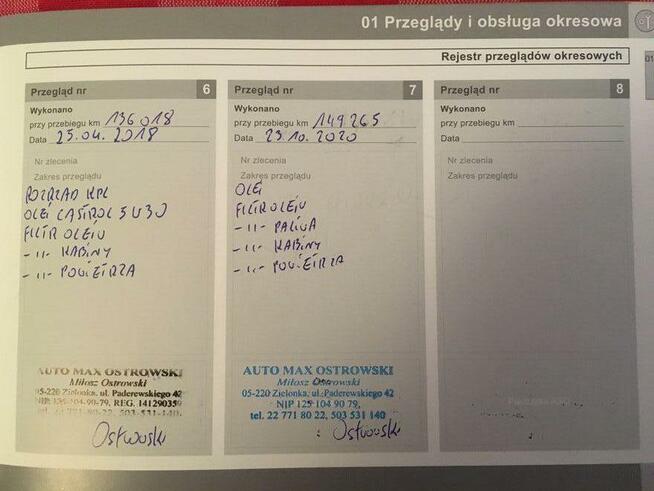 01 Przeglądy i obsługa okresowa
01
Rejestr przeglądów okresowych
Przegląd nr 6
Wykonano
przy przebiegu km 136018
Data 25.04.2018
Nr zlecenia
Zakres przeglądu
ROZRZĄD KPL
OLEJ CASTROL 5W30
FILTR OLEJU
-11- KABINY
-11- POWIETRZA
AUTO MAX OSTROWSKI
Miłosz Ostrowski
05-220 Zielonka, ul. Paderewskiego 42
NIP 125-104-90-79, REG. 14129035
tel. 22 771-80-22, 503-531-140
Ostrowski
Przegląd nr 7
Wykonano
przy przebiegu km 149265
Data 23.10.2020
Nr zlecenia
Zakres przeglądu
OLEJ
FILTR OLEJU
-11- PALIWA
-11- KABINY
-11- POWIETRZA
AUTO MAX OSTROWSKI
Miłosz Ostrowski
05-220 Zielonka, ul. Paderewskiego 42
NIP 125 104 90 79,
tel. 22 771 80 22, 503 531 140
Ostrowski
Przegląd nr 8
Wykonano
przy przebiegu km
Data
Nr zlecenia
Zakres przeglądu